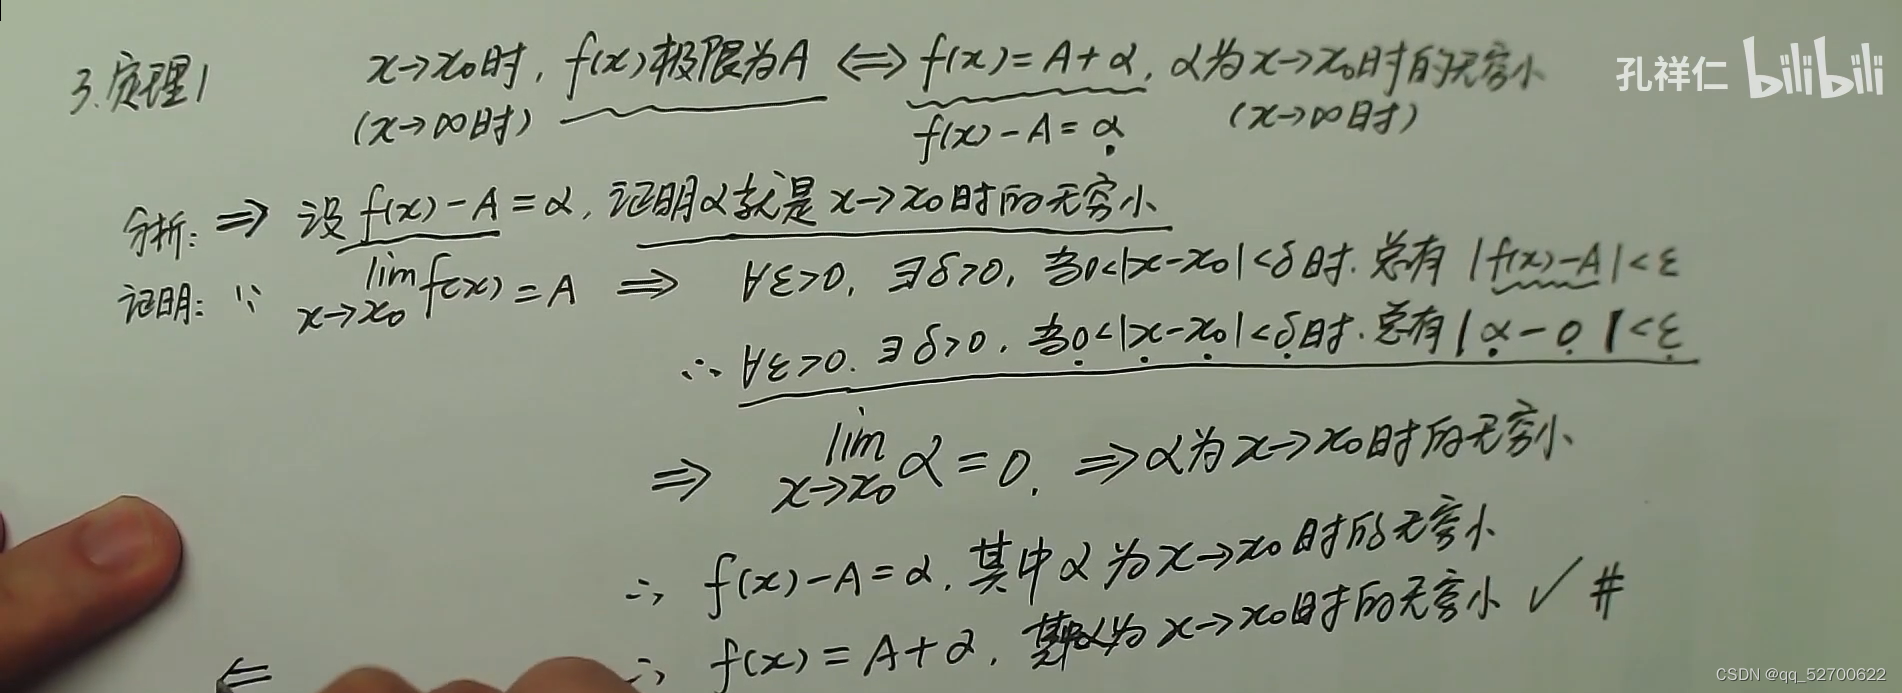 3.定理1 x→x₀时, f(x)极限为A ⟺ f(x)=A+α, α为x→x₀时的无穷小
(x→∞时) f(x)-A=α (x→∞时)
孔祥仁 bilibili
分析: ⇒ 设 f(x)-A=α, 证明α就是x→x₀时的无穷小
证明: ∵ lim f(x)=A ⇒ ∀ε>0, ∃δ>0, 当0<|x-x₀|<δ时. 总有 |f(x)-A|<ε
x→x₀
∴ ∀ε>0. ∃δ>0, 当0<|x-x₀|<δ时. 总有|α-0|<ε
⇒ lim α=0. ⇒α为x→x₀时的无穷小
x→x₀
∴ f(x)-A=α, 其中α为x→x₀时的无穷小
∴ f(x)=A+α, 其中α为x→x₀时的无穷小 ✓ #
⇐
CSDN @qq_52700622